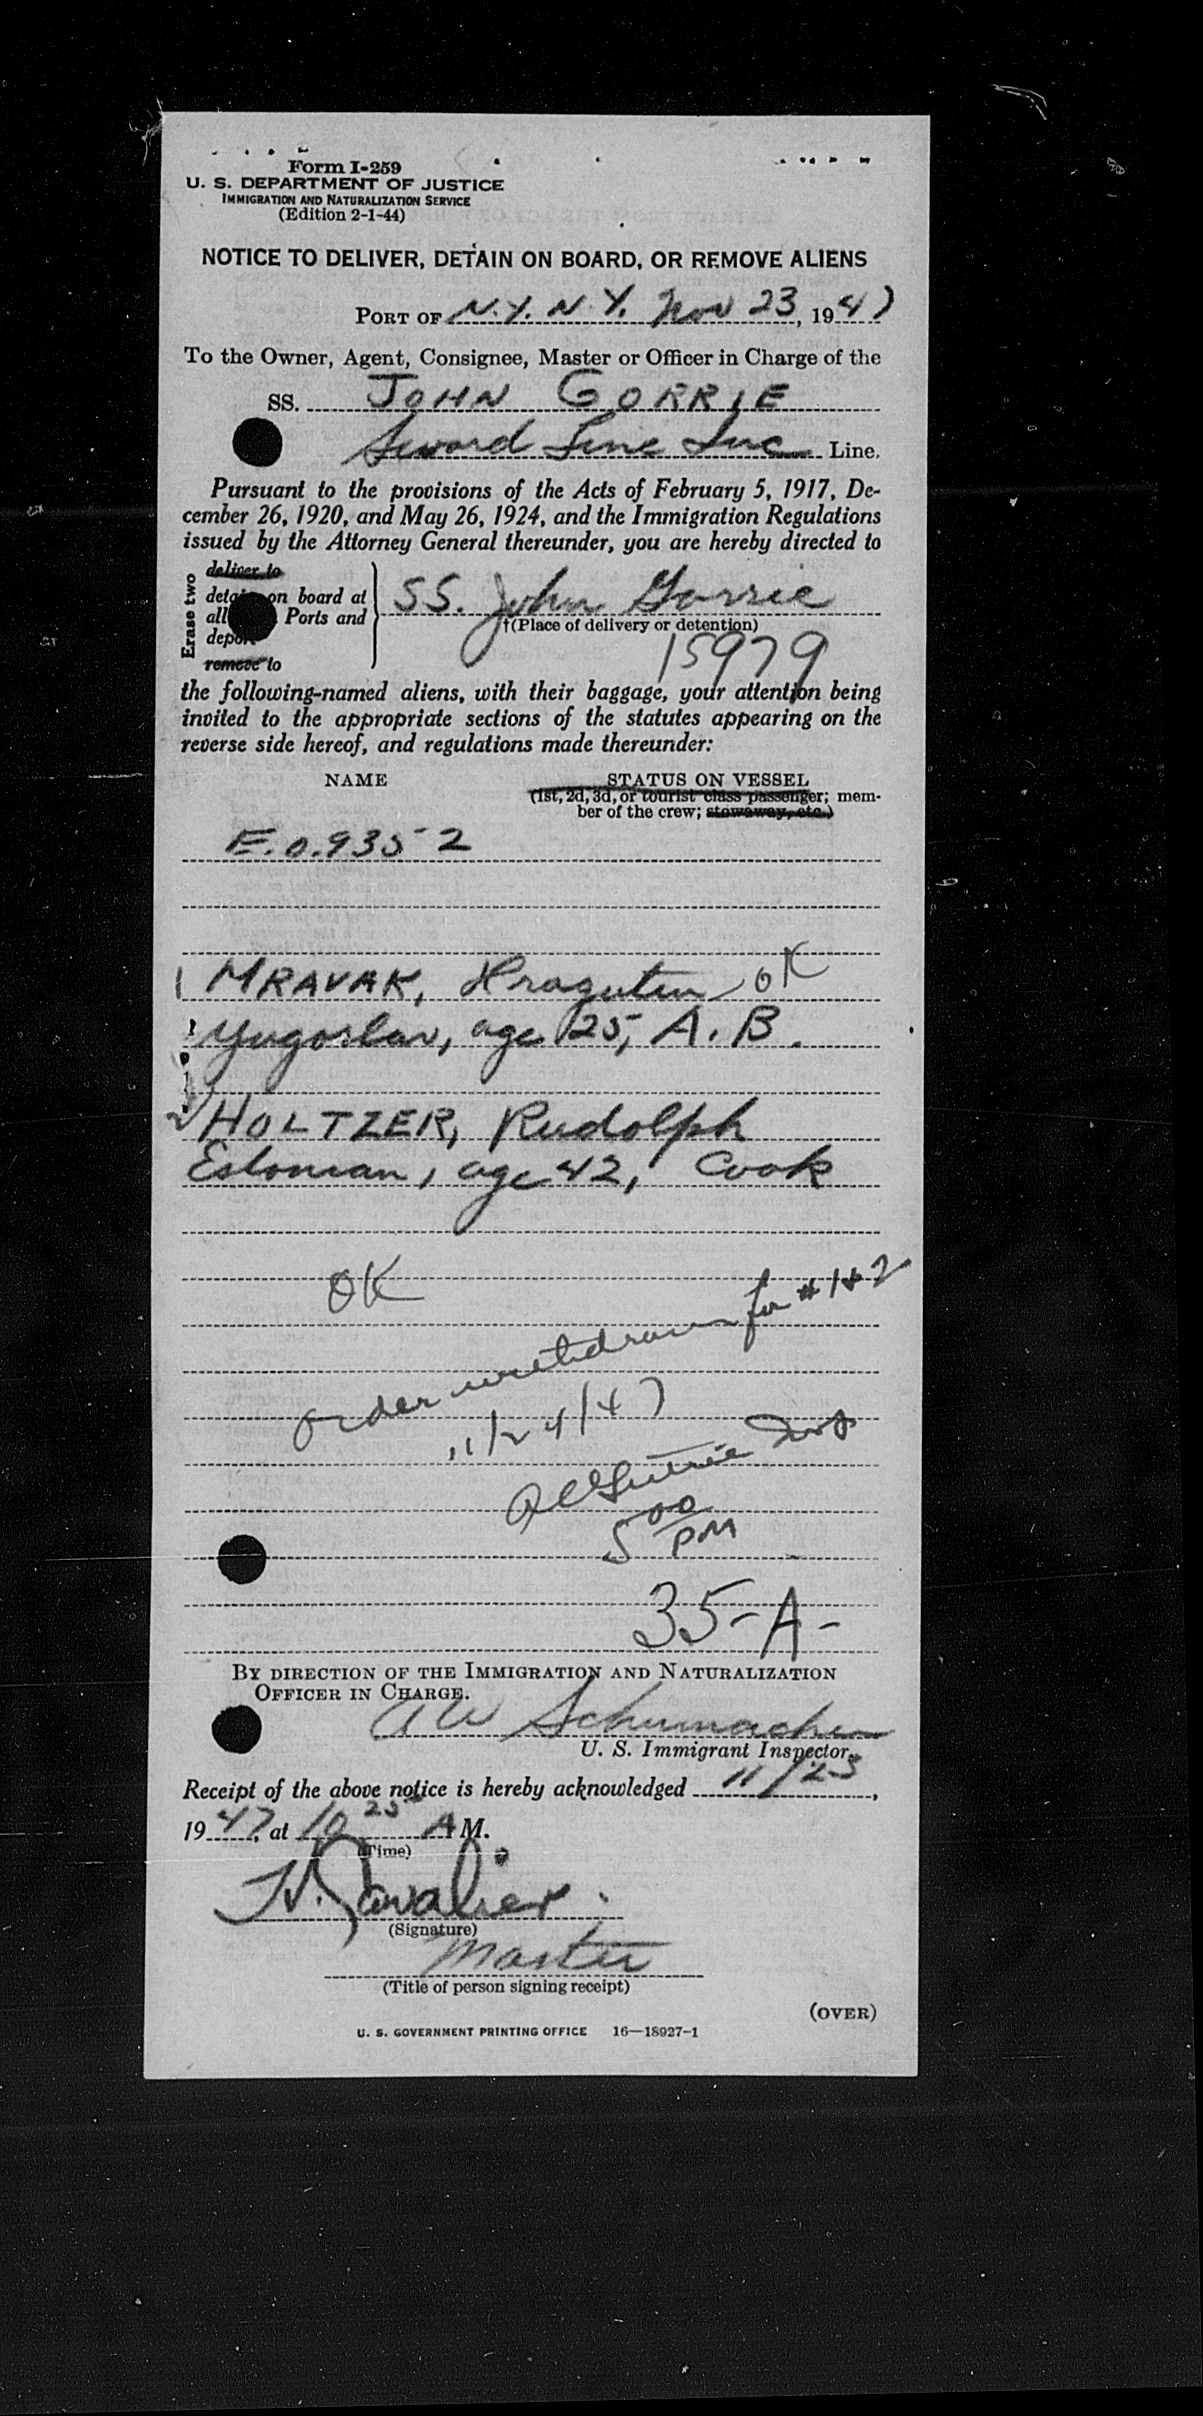 Form I-259
U. S. DEPARTMENT OF JUSTICE
IMMIGRATION AND NATURALIZATION SERVICE
(Edition 2-1-44)
NOTICE TO DELIVER, DETAIN ON BOARD, OR REMOVE ALIENS
PORT OF N.Y. N.Y. Nov 23, 1947
To the Owner, Agent, Consignee, Master or Officer in Charge of the
SS. JOHN GORRIE
Sword Line Inc Line.
Pursuant to the provisions of the Acts of February 5, 1917, De-
cember 26, 1920, and May 26, 1924, and the Immigration Regulations
issued by the Attorney General thereunder, you are hereby directed to
Erase two
deliver to
detain on board at
all Ports and
deport
remove to
SS. John Gorrie
†(Place of delivery or detention)
15979
the following-named aliens, with their baggage, your attention being
invited to the appropriate sections of the statutes appearing on the
reverse side hereof, and regulations made thereunder:
NAME STATUS ON VESSEL
(1st, 2d, 3d, or tourist class passenger; mem-
ber of the crew; stowaway, etc.)
E.O. 9352
1 MRAVAK, Dragutin OK
Yugoslav, age 25, A.B.
2 HOLTZER, Rudolph
Estonian, age 42, Cook
OK
Order withdrawn for # 1 & 2
11/24/47
Guthrie Insp
5 00 PM
35-A-
BY DIRECTION OF THE IMMIGRATION AND NATURALIZATION
OFFICER IN CHARGE.
A W Schumacher
U. S. Immigrant Inspector.
Receipt of the above notice is hereby acknowledged 11/23,
1947, at 10 25 A M.
(Time)
(Signature)
Master
(Title of person signing receipt)
(OVER)
U. S. GOVERNMENT PRINTING OFFICE 16—18927-1